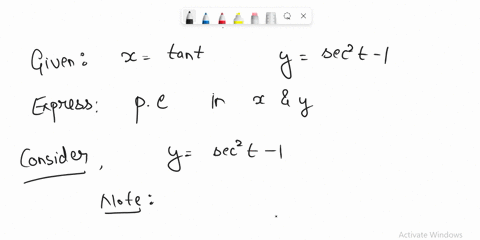 Given: x = tant y = sec²t-1
Express: p.e in x & y
Consider, y = sec²t-1
Note:
Activate Windows